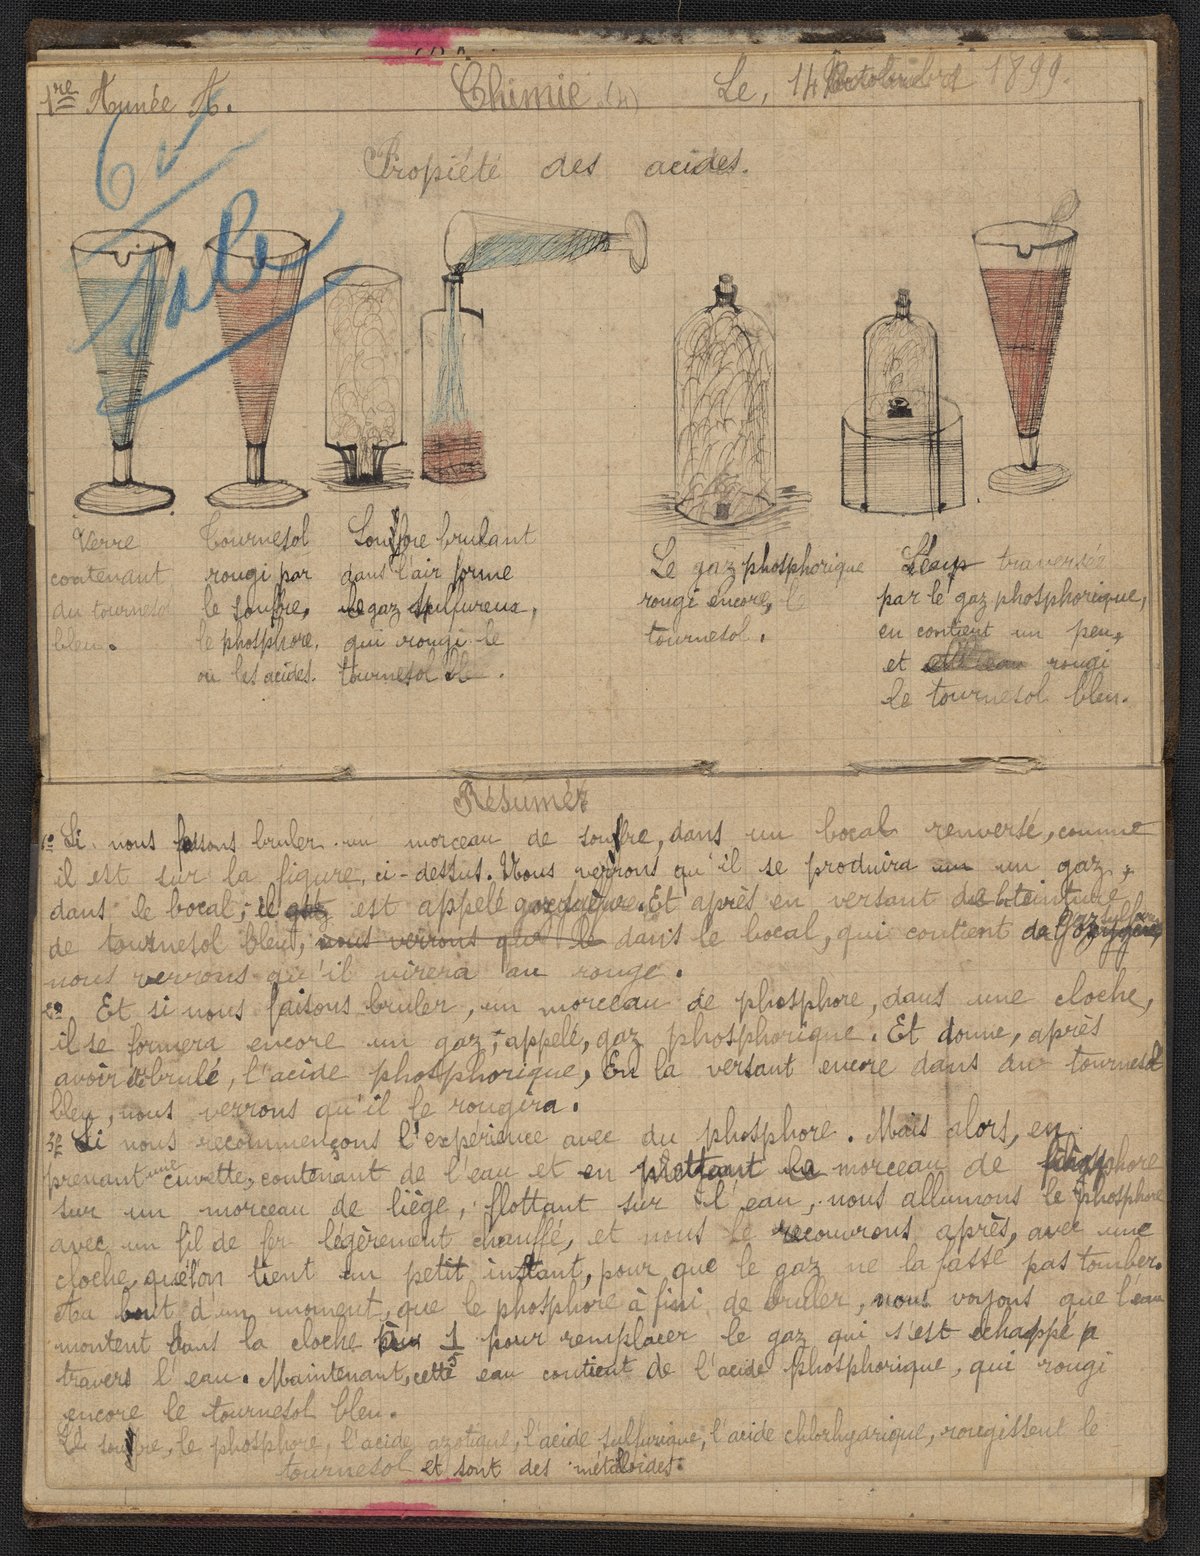 1re Année A.
Chimie (4)
Le, 14 1899.
6
sale
Propiété des acides.
Verre
contenant
du tournesol
bleu.
Tournesol
rougi par
le soufre,
le phosphore,
ou les acides.
Souffre brulant
dans l'air forme
le gaz sulfureux,
qui rougi le
tournesol bleu.
Le gaz phosphorique
rougi encore, le
tournesol.
L'eau traversée
par le gaz phosphorique,
en contient un peu,
et rougi
le tournesol bleu.
Résumér
1º Si nous faisons bruler un morceau de souffre, dans un bocal renversé, comme
il est sur la figure, ci-dessus. Nous verrons qu'il se produira un un gaz,
dans le bocal, il gaz est appelé gaz Et après en versant de la teinture
de tournesol bleu, nous verrons que le dans le bocal, qui contient
nous verrons qu'il virera au rouge.
2º Et si nous faisons bruler, un morceau de phosphore, dans une cloche,
il se formera encore un gaz, appelé, gaz phosphorique. Et donne, après
avoir brulé, l'acide phosphorique, En la versant encore dans du tournesol
bleu, nous verrons qu'il le rougira.
3º Si nous recommençons l'expérience avec du phosphore. Mais alors, en
prenant une cuvette, contenant de l'eau et en mettant le morceau de phosphore
sur un morceau de liège, flottant sur l'eau, nous allumons le phosphore
avec un fil de fer légèrement chauffé, et nous le recouvrons après, avec une
cloche, que l'on tient un petit instant, pour que le gaz ne la fasse pas tomber.
Au bout d'un moment, que le phosphore à fini de bruler, nous voyons que l'eau
montent dans la cloche 1/5 pour remplacer le gaz qui s'est échappé a
travers l'eau. Maintenant, cette eau contient de l'acide phosphorique, qui rougi
encore le tournesol bleu.
Le souffre, le phosphore, l'acide azotique, l'acide sulfurique, l'acide chlorhydrique, rougissent le
tournesol et sont des métalloïdes.